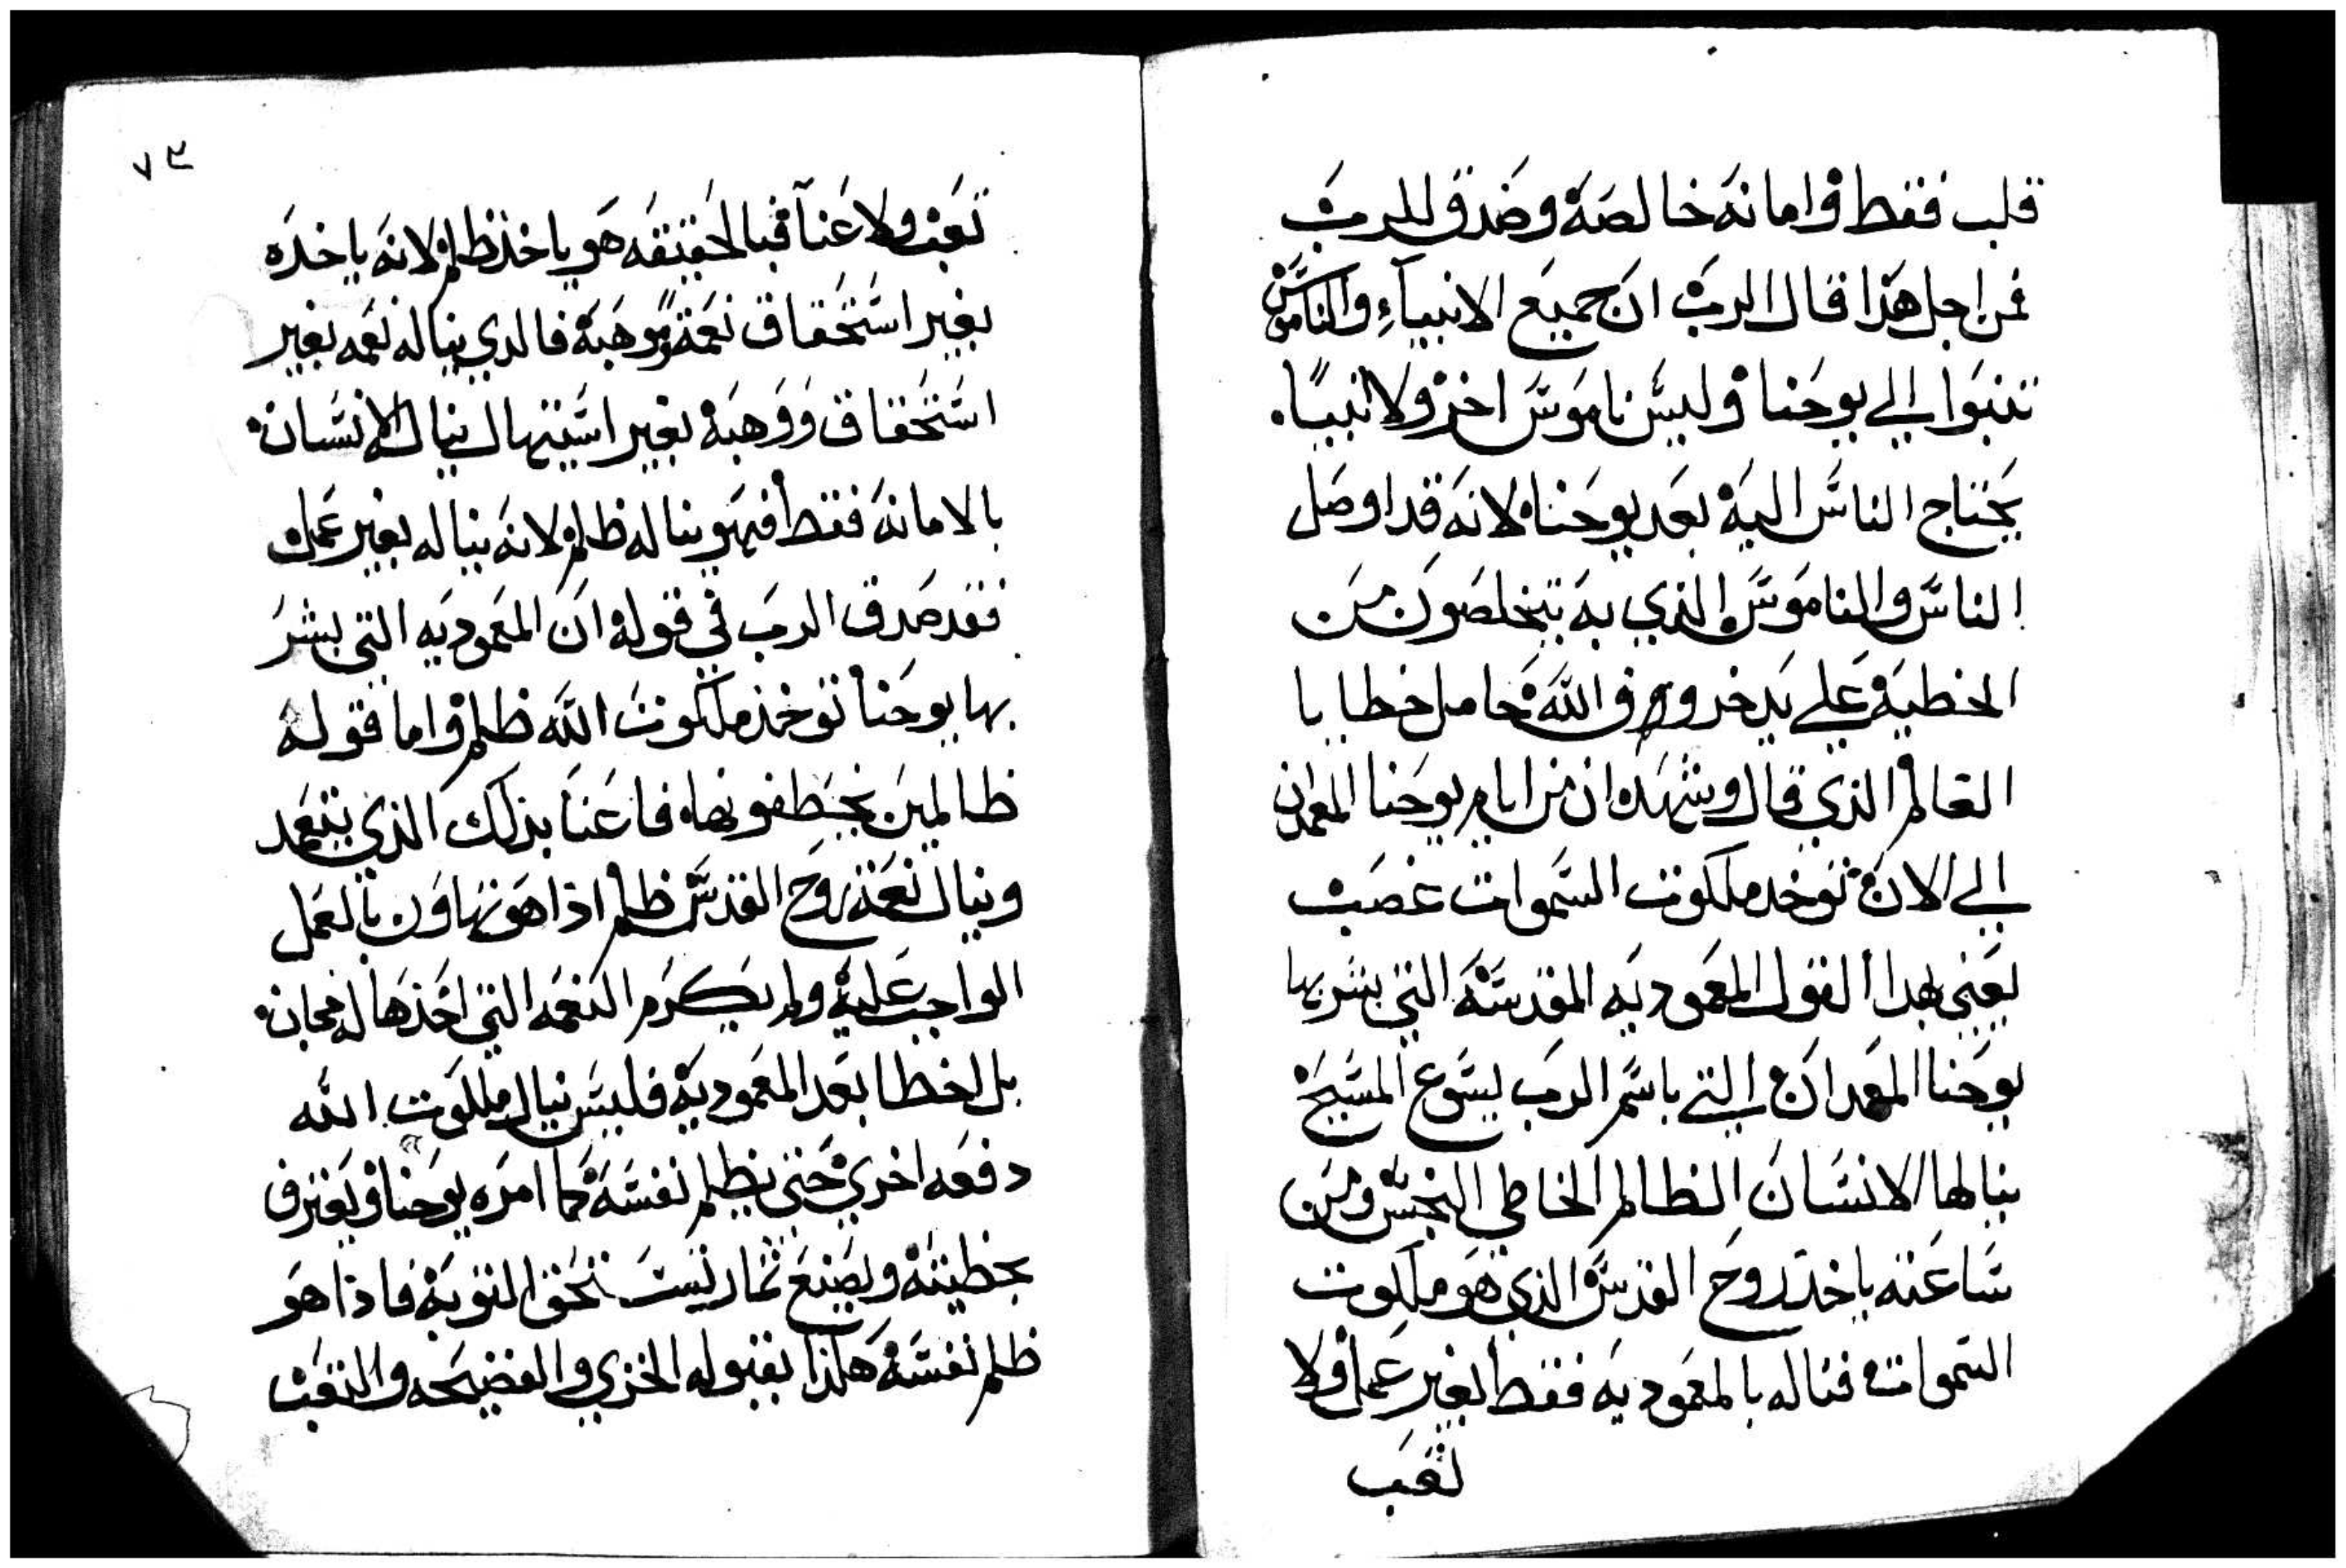 قلب فقط وامانه خالصة وصدق للرب
فمن اجل هذا قال الرب ان جميع الانبياء والناموس
تنبوا الي يوحنا وليس ناموس اخر ولا نبيًا
يحتاج الناس اليه بعد يوحنا لانه قد اوصل
الناس والناموس الذي به يتخلصون من
الخطية علي يد خروف الله حامل خطايا
العالم الذي قال وشهد ان من ايام يوحنا المعمدان
الي الان توخد ملكوت السموات غصب
يعني بهدا القول المعموديه المقدسة التي بشر بها
يوحنا المعمدان التي باسم الرب يسوع المسيح
ينالها الانسان الظالم الخاطي النجس ومن
ساعته ياخد روح القدس الذي هو ملكوت
السموات فناله بالمعموديه فقط بغير عمل ولا
تعب
٧٣
تعب ولا عنآ فبالحقيقه هو ياخذ ظلم لانه ياخده
بغير استحقاق نعمة وموهبة فالدي يناله نعمه بغير
استحقاق ووهبة بغير استيهال ينال الانسان
بالامانه فقط فهو يناله ظلم لانه يناله بغير عمل
فقد صدق الرب في قوله ان المعموديه التي بشر
بها يوحنا توخذ ملكوت الله ظلم واما قوله
ظالمين يخطفونها فاعنا بذلك الذي يتعمد
وينال نعمة روح القدس ظلم اذا هو تهاون بالعمل
الواجب عليه ولم يكرم النعمه التي اخذها له مجان
بل اخطا بعد المعمودية فليس ينال ملكوت الله
دفعه اخري حتي يظلم نفسه كما امره يوحنا ويعترف
بخطيته ويصنع ثمار تستحق التوبة فاذا هو
ظلم نفسه هكذا بقبوله الخزي والفضيحه والتعب